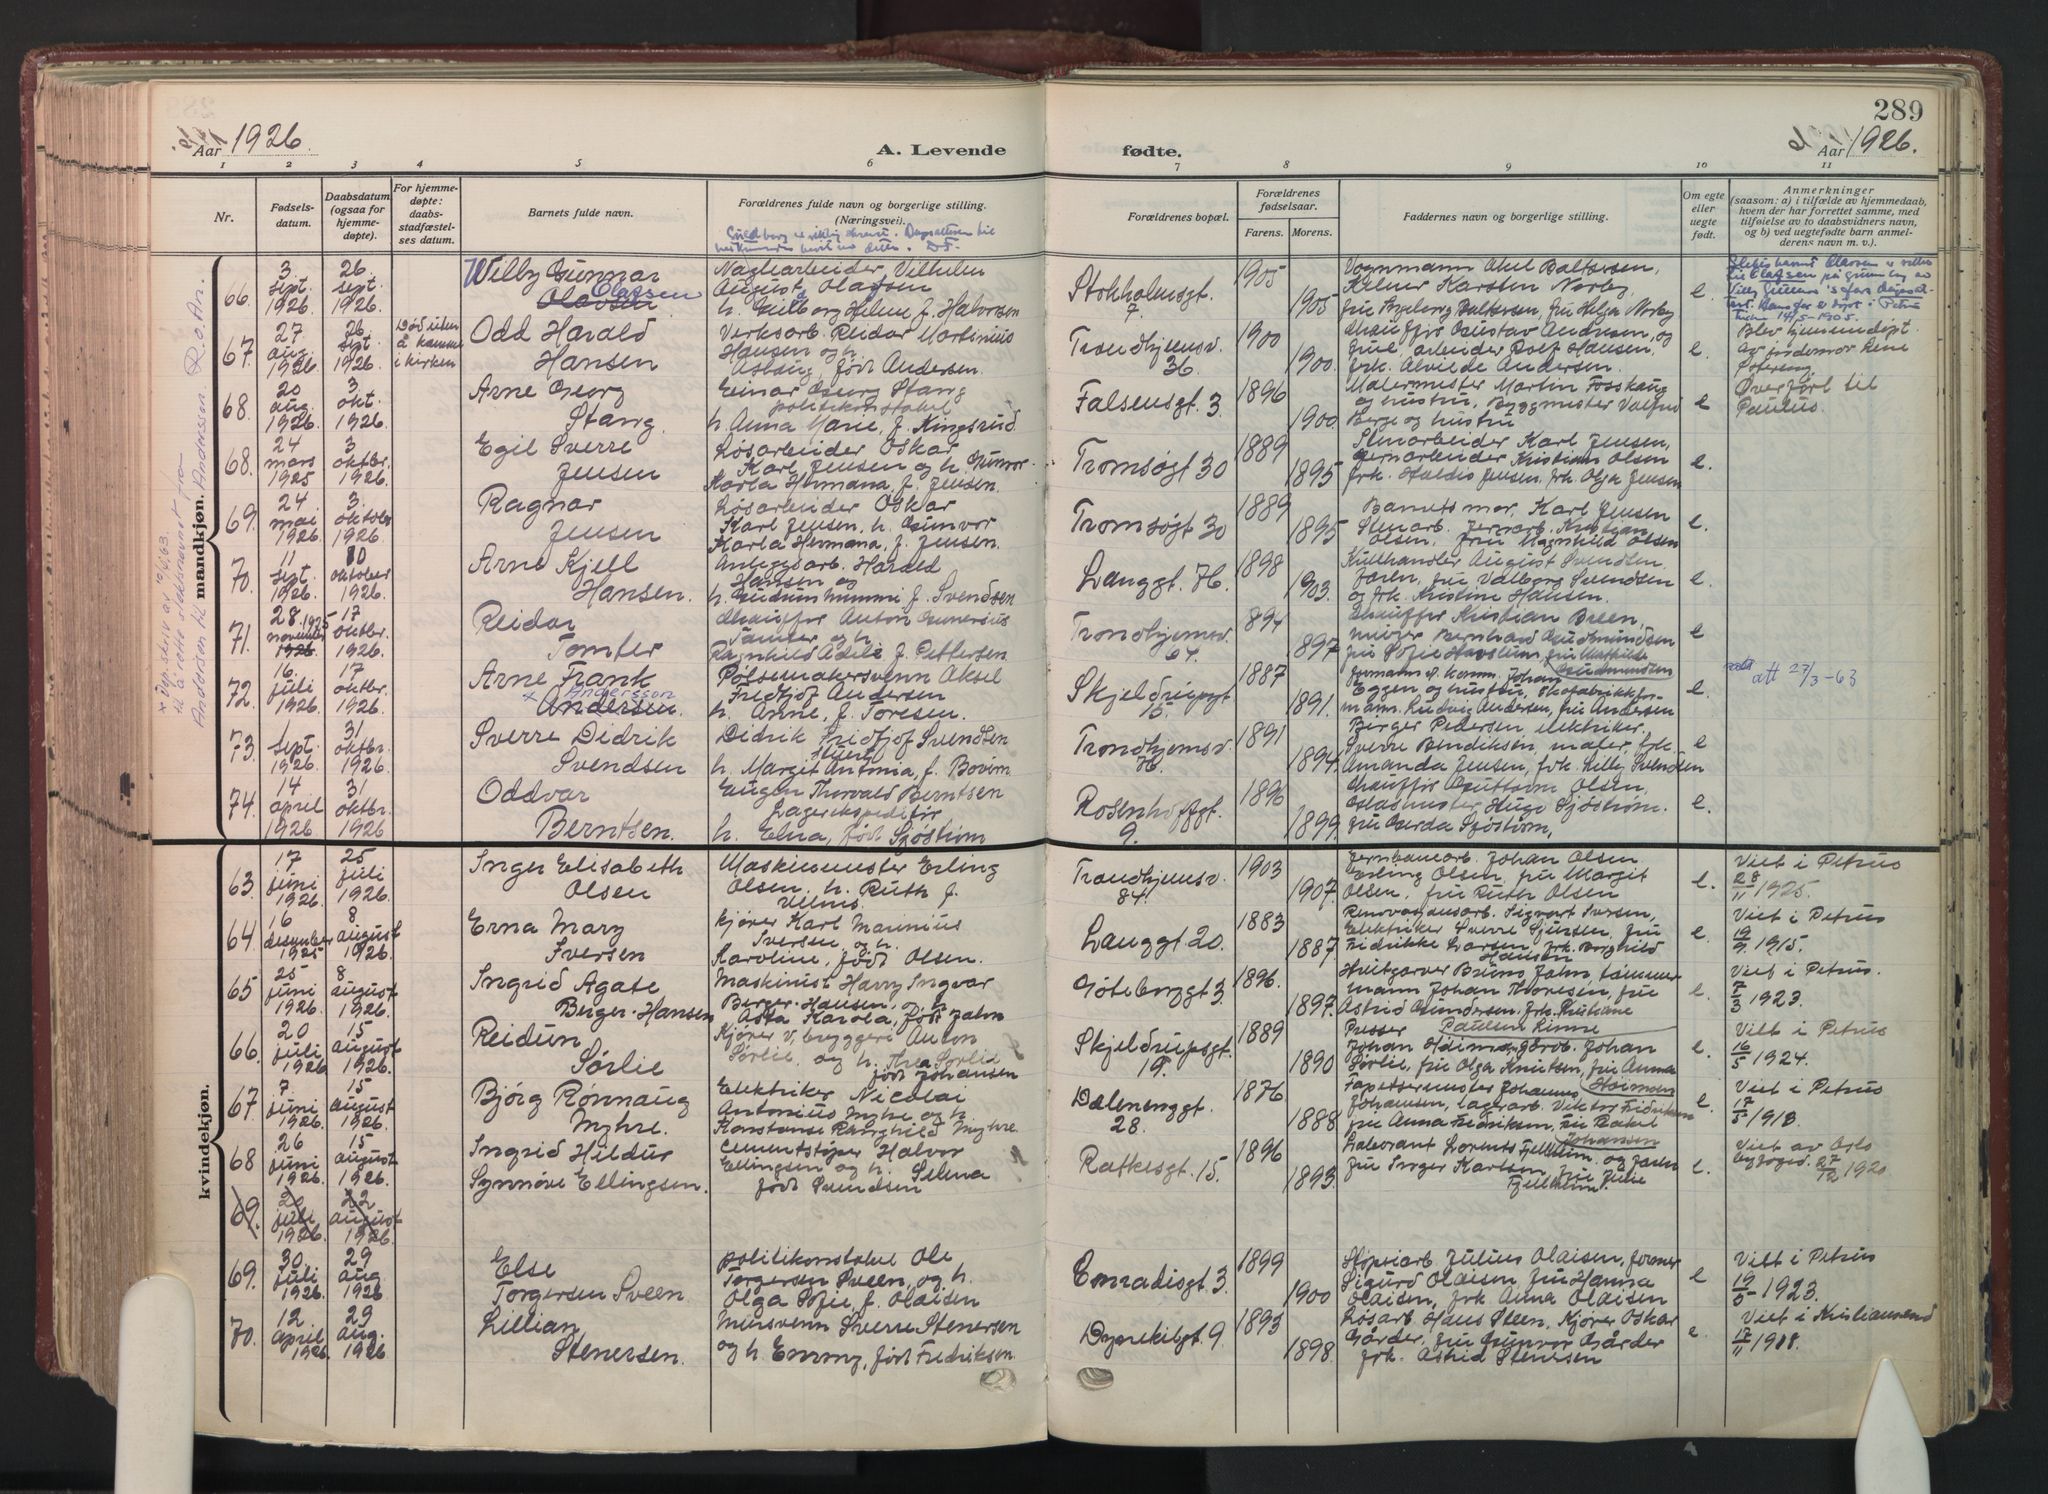 289
Aar 1926.
A. Levende
fødte.
Aar 1926.
1 2 3 4 5 6 7 8 9 10 11
Nr.
Fødsels-
datum.
Daabsdatum
(ogsaa for
hjemme-
døpte).
For hjemme-
døpte:
daabs-
stadfæstel-
ses datum.
Barnets fulde navn.
Forældrenes fulde navn og borgerlige stilling.
(Næringsvei).
Forældrenes bopæl.
Forældrenes
fødselsaar.
Farens. Morens.
Faddernes navn og borgerlige stilling.
Om egte
eller
uegte
født.
Anmerkninger
(saasom: a) i tilfælde av hjemmedaab,
hvem der har forrettet samme, med
tilføielse av to daabsvidners navn,
og b) ved uegtefødte barn anmel-
derens navn m. v.).
mandkjøn.
66. 3 sept. 1926 26. sept. 1926.
Willy Gunnar
Olavsen Olafsen
Naglearbeider Vilhelm
August Olafsen
h. Gudborg Helene f. Halvorsen
Stokholmsgt. 7.
1905 1905
Vognmann Axel Baltersen,
Karsten Norby,
fru Helga Norby
e.
67. 27 aug. 1926 26 sept. 1926.
Død uten
å komme
i kirken
Odd Harald
Hansen
Verksarb. Reidar Martinius
Hansen og h.
Aslaug, født Andersen.
Trondhjemsv. 36.
1900 1900.
Chauffør Gustav Andresen, og
arbeider Rolf Hansen,
frk. Alvilde Andersen.
e.
Blev hjemmedøpt
av jordmor Lene
68. 20 aug. 1926. 3. okt. 1926.
Arne Georg
Stang.
Einar Georg Stang
politikonstabel
h. Anna Marie, f. Kingsrud
Falsensgt. 3.
1896 1900.
Malermester Martin Fosshaug
og hustru, Byggmester Valfrid
Berge og hustru
e
Overført til
Paulus.
68. 24 mars 1925 3 oktbr. 1926.
Egil Sverre
Jensen
Løsarbeider Oskar
Karl Jensen og h. Gunvor
Karla Hermana, f. Jensen.
Tromsøgt 30
1889 1895
Stenarbeider Karl Jensen,
Jernarbeider Kristian Olsen
frk. Haldis Jensen, frk. Olga Jensen
e.
69. 24. mai 1926. 3. oktober 1926.
Ragnar
Jensen
Løsarbeider Oskar
Karl Jensen, h. Gunvor
Karla Hermana, f. Jensen.
Tromsøgt 30
1889 1895.
Barnets mor, Karl Jensen
Stenarb. Jernarb. Kristian
Olsen, fru Magnhild Olsen
e.
70. 11 sept. 1926. 10 oktober 1926.
Arne Kjell
Hansen.
Anleggsarb. Harald
Hansen og
h. Gudrun Mummi f. Svendsen
Langgt. 76.
1898 1903.
Kulhandler August Svendsen,
Faren, fru Valborg Svendsen
og frk. Kristine Hansen.
e
71. 28. 1925 november 1926 17 oktbr. 1926.
Reidar
Tomter
Chauffør Anton Gunerius
Tomter og h.
Ragnhild Adele f. Pettersen.
Trondhjemsv. 64.
1894 1897
Chauffør Kristian Breen,
murer Bernhard Gudmundsen
fru Sofie Havslum, fru Mathilde
Gudmundsen
e
72. 16. juli 1926. 17 oktbr. 1926.
Arne Frank
Andersson
Andersen.
Pølsemakersvenn Aksel
Fredtjof Andersen
h. Anne, f. Toresen.
Skjeldrupsgt 15.
1887 1891.
Johan
Eggen og hustru, skofabrikkfor-
mann Ludvig Andersen, fru Andersen
e.
att 27/3-63
73. 1 sept. 1926 31 oktbr. 1926.
Sverre Didrik
Svendsen
Didrik Fridtjof Svendsen
h. Margit Antonia, f. Bovim
Trondhjemsv. 76.
1891 1894.
Birger Pedersen elektriker,
Sverre Bendiksen, maler, frk.
Amanda Jensen, frk. Lilly Svendsen
e
74. 14 april 1926 31 oktbr. 1926
Oddvar
Berntsen.
Eugen Thorvald Berntsen
Lagerekspeditør
h. Elna, født Sjøstrøm
Rosenhoffgt. 9.
1896 1899.
Chauffør Guttorm Olsen,
Glasmester Hugo Sjøstrøm.
fru Gerda Sjøstrøm,
e.
kvindekjøn.
63. 17 juni 1926. 25 juli 1926.
Inger Elisabeth
Olsen
Maskinmester Erling
Olsen, h. Ruth f.
Trondhjemsv. 84.
1903 1907.
Jernbanearb. Johan Olsen
Erling Olsen, fru Margit
Olsen, fru Ruth Olsen
e.
Viet i Petrus
28/11 1925.
64. 16 desember 1925 8 august 1926.
Erna Mary
Iversen
Kjører Karl Marinius
Iversen, og h.
Karoline, født Olsen.
Langgt 20.
1883 1887
Renovasjonsarb. Sigvart Iversen,
Elektriker Sverre Sjursen, fru
Fredrikke Larsen, frk. Borghild
Hansen
e.
Viet i Petrus
19/9 1915.
65 25 juni 1926. 8 august 1926.
Ingrid Agate
Berger-Hansen
Maskinist Harry Ingvar
Berger-Hansen, og
Asta Karola, født Jahn
Göteborggt 3.
1896. 1897.
Bruno Jahn, tømmer
mann Johan Thoresen, fru
Astrid Gundersen, frk. Kristiane
Paulsen Rinne
e.
Viet i Petrus.
7/3 1923.
66. 20 juli 1926 15 august 1926.
Reidun
Sørlie
Kjører v. bryggeri Anton
Sørlie og h. Thea Sørlie
født Johansen
Skjeldrupsgt. 19.
1889 1890
Presser
Johan Heiman, gårdb. Johan
Sørlie, fru Olga Knutsen, fru Anna
Heiman
e.
Viet i Petrus
16/5 1924.
67 7 juni 1926. 15 august 1926.
Bjørg Rønnaug
Myhre.
Elektriker Nicolai
Antonius Myhre og h.
Konstanse Ranghild Myhre.
Dælenenggt. 28.
1876 1888
Tapetserermester Johannes
Johansen, lagerarb. Viktor Fredriksen
fru Anna Fredriksen, fru Rakel
Johansen
e.
Viet i Petrus
17/5 1918.
68 26 juni 1926. 15 august 1926.
Ingrid Hildur
Synnøve Ellingsen.
Cementstøper Halvor
Ellingsen og h. Selma
født Svendsen
Ratkesgt. 15.
1896 1893.
Laborant Lorents Fjellheim. og faren
fru Inger Karlsen, fru Julie
Fjellheim.
e.
Viet av Oslo
byfoged. 27/12 1920
69. 2 juli 1926 22 august 1926.
69. 30 juli 1926. 29 aug. 1926
Else
Torgersen Sveen.
politikonstabel Ole
Torgersen Sveen, og h.
Olga Sofie, f. Olaisen
Conradisgt 3.
1899 1900
Støperiarb Julius Olaisen, former
Sigurd Olaisen, fru Hanna
Olaisen, frk Anna Olaisen
e
Viet i Petrus
19/5 1923.
70. 12. april 1926. 29 aug. 1926
Lillian
Stenersen.
Mursvenn Sverre Stenersen
og h. Emmy, født Fredriksen.
Dyrekilgt 9.
1893 1898.
Løsarb Hans Steen, Kjører Oskar
Gårder, fru Gunvor Gårder
frk. Astrid Stenersen
e.
Viet i Kristiansand
17/11 1918.